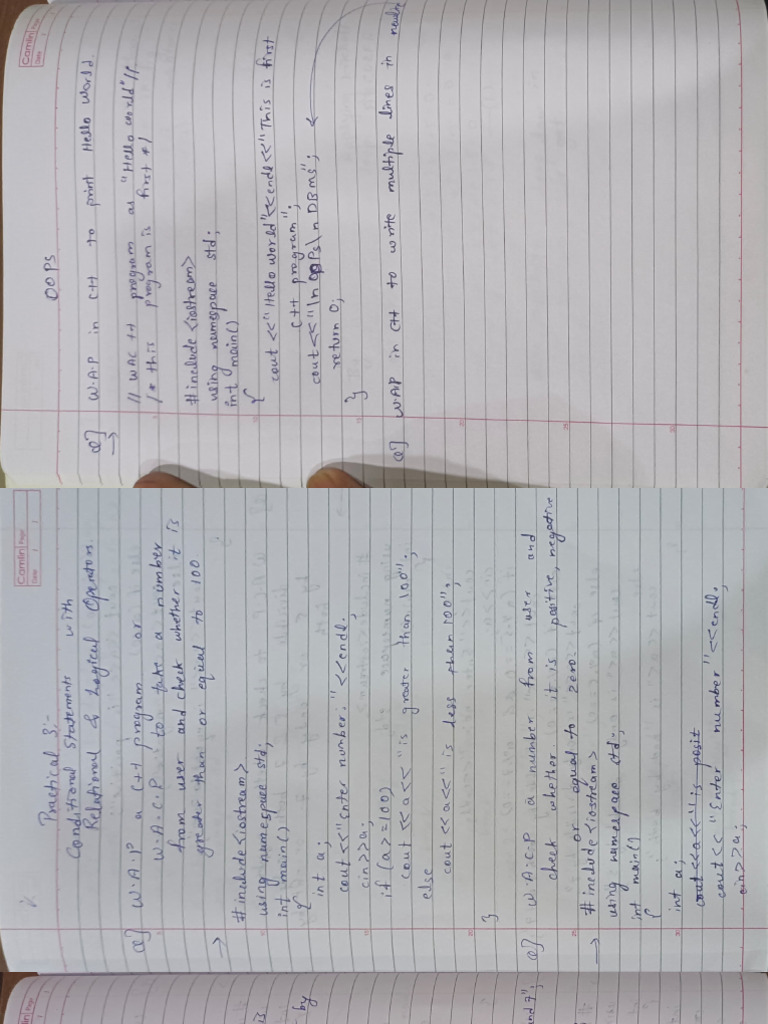 Camlin Page
Date
OOPS
Q] W.A.P in C++ to print Hello World.
→ // WAC ++ program as "Hello world"//
/* this program is first */
#include <iostream>
using namespace std;
int main()
{
cout <<"Hello World"<<endl<<"This is first
C++ program";
cout<<"\n OOPs\n DBMS";
return 0;
}
Q] W.A.P in C++ to write multiple lines in
Camlin Page
Date
Practical 3:-
Conditional Statements with
Relational & Logical Operators.
Q] W.A.P a C++ program or
W.A.C.P to take a number
from user and check whether it is
greater than or equal to 100
→ #include <iostream>
using namespace std;
int main()
{
int a;
cout<<"Enter number:"<<endl.
cin>>a;
if (a>=100)
cout <<a<<" is greater than 100";
else
cout <<a<<" is less than 100";
}
Q] W.A.C.P a number from user and
check whether it is positive, negative
or equal to zero.
→ #include <iostream>
using namespace std;
int main()
{
int a;
cout <<a<<" is posit
cout << "Enter number"<<endl.
cin>>a;
Camlin Page
Date
is
by
and 7";